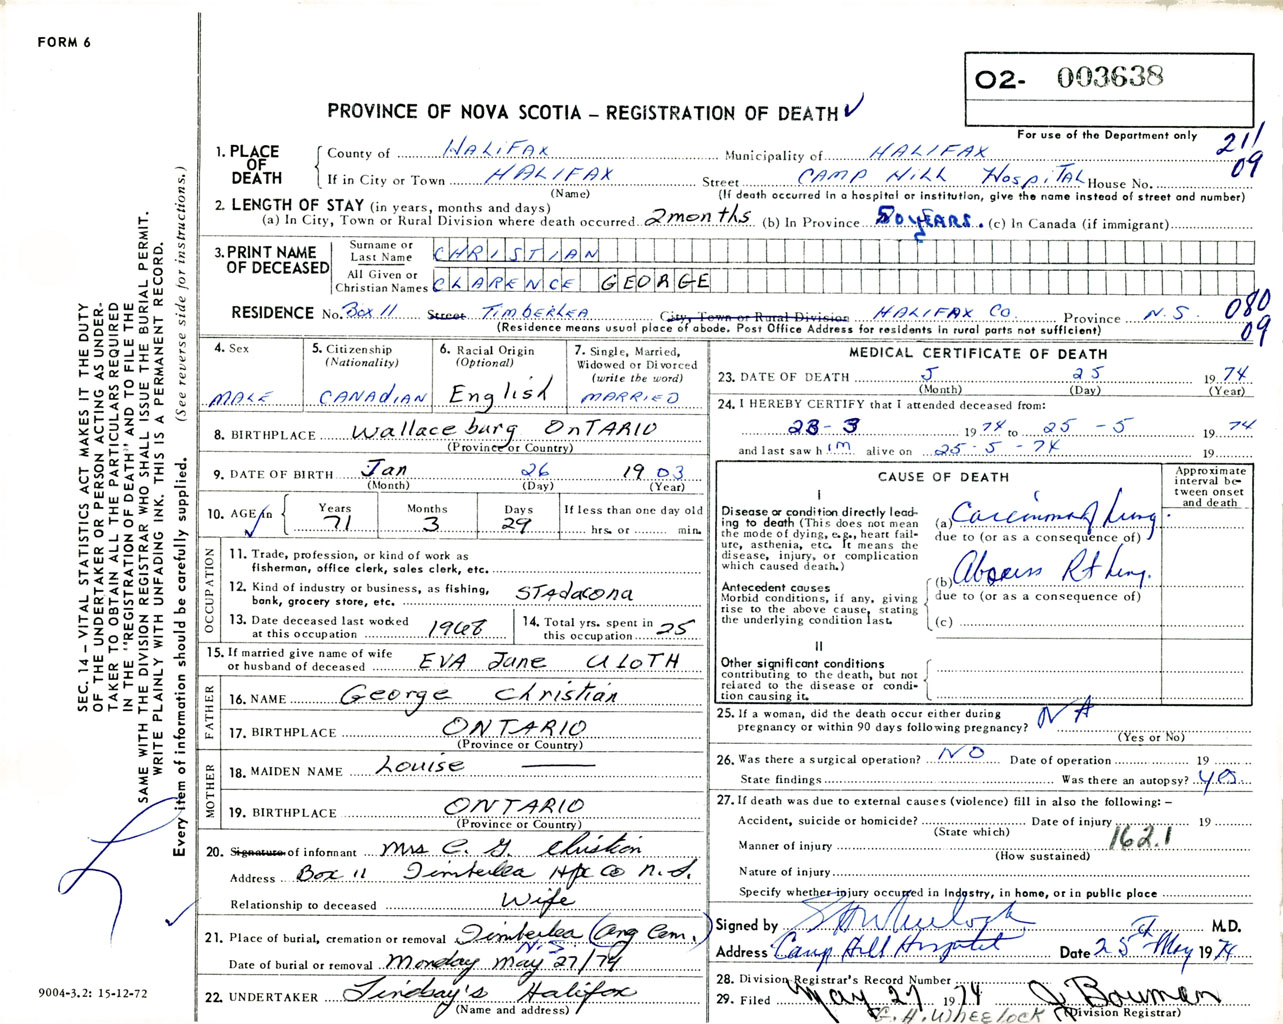 FORM 6
02- 003638
PROVINCE OF NOVA SCOTIA – REGISTRATION OF DEATH ✓
For use of the Department only
211
09
1. PLACE OF DEATH
County of HALIFAX Municipality of HALIFAX
If in City or Town HALIFAX Street CAMP HILL HOSPITAL House No.
(Name) (If death occurred in a hospital or institution, give the name instead of street and number)
2. LENGTH OF STAY (in years, months and days)
(a) In City, Town or Rural Division where death occurred 2 months (b) In Province 50 YEARS. (c) In Canada (if immigrant)
3. PRINT NAME OF DECEASED
Surname or Last Name CHRISTIAN
All Given or Christian Names CLARENCE GEORGE
RESIDENCE No. Box 11 Street TIMBERLEA City, Town or Rural Division HALIFAX CO. Province N.S.
080
09
(Residence means usual place of abode. Post Office Address for residents in rural parts not sufficient)
4. Sex
MALE
5. Citizenship
(Nationality)
CANADIAN
6. Racial Origin
(Optional)
English
7. Single, Married,
Widowed or Divorced
(write the word)
MARRIED
8. BIRTHPLACE Wallaceburg ONTARIO
(Province or Country)
9. DATE OF BIRTH Jan 26 1903
(Month) (Day) (Year)
10. AGE in
Years Months Days If less than one day old
71 3 29 hrs. or min.
OCCUPATION
11. Trade, profession, or kind of work as
fisherman, office clerk, sales clerk, etc.
12. Kind of industry or business, as fishing,
bank, grocery store, etc. STADACONA
13. Date deceased last worked
at this occupation 1968
14. Total yrs. spent in
this occupation 25
15. If married give name of wife
or husband of deceased EVA Jane ULOTH
FATHER
16. NAME George Christian
17. BIRTHPLACE ONTARIO
(Province or Country)
MOTHER
18. MAIDEN NAME Louise ——
19. BIRTHPLACE ONTARIO
(Province or Country)
20. Signature of informant Mrs C. G. Christian
Address Box 11 Timberlea Hfx Co N.S.
Relationship to deceased Wife
21. Place of burial, cremation or removal Timberlea (Ang Cem.)
N.S
Date of burial or removal Monday May 27/74
22. UNDERTAKER Lindsay's Halifax
(Name and address)
MEDICAL CERTIFICATE OF DEATH
23. DATE OF DEATH 5 25 1974
(Month) (Day) (Year)
24. I HEREBY CERTIFY that I attended deceased from:
23-3 1974 to 25-5 1974
and last saw him alive on 25-5-74 19
CAUSE OF DEATH
Approximate
interval be-
tween onset
and death
I
Disease or condition directly lead-
ing to death (This does not mean
the mode of dying, e.g., heart fail-
ure, asthenia, etc. It means the
disease, injury, or complication
which caused death.)
(a) Carcinoma of Lung.
due to (or as a consequence of)
Antecedent causes
Morbid conditions, if any, giving
rise to the above cause, stating
the underlying condition last.
(b) Abscess Rt Lung.
due to (or as a consequence of)
(c)
II
Other significant conditions
contributing to the death, but not
related to the disease or condi-
tion causing it.
25. If a woman, did the death occur either during
pregnancy or within 90 days following pregnancy? NA
(Yes or No)
26. Was there a surgical operation? NO Date of operation 19
State findings Was there an autopsy? yes
27. If death was due to external causes (violence) fill in also the following: –
Accident, suicide or homicide? Date of injury 19
(State which)
162.1
Manner of injury
(How sustained)
Nature of injury
Specify whether injury occurred in industry, in home, or in public place
Signed by EHWheelock M.D.
Address Camp Hill Hospital Date 25th May 1974
28. Division Registrar's Record Number
29. Filed May 27 1974 J Bowman
(Division Registrar)
E. H. WHEELOCK
SEC. 14 – VITAL STATISTICS ACT MAKES IT THE DUTY
OF THE UNDERTAKER OR PERSON ACTING AS UNDER-
TAKER TO OBTAIN ALL THE PARTICULARS REQUIRED
IN THE "REGISTRATION OF DEATH" AND TO FILE THE
SAME WITH THE DIVISION REGISTRAR WHO SHALL ISSUE THE BURIAL PERMIT.
WRITE PLAINLY WITH UNFADING INK. THIS IS A PERMANENT RECORD.
Every item of information should be carefully supplied. (See reverse side for instructions.)
9004-3.2: 15-12-72